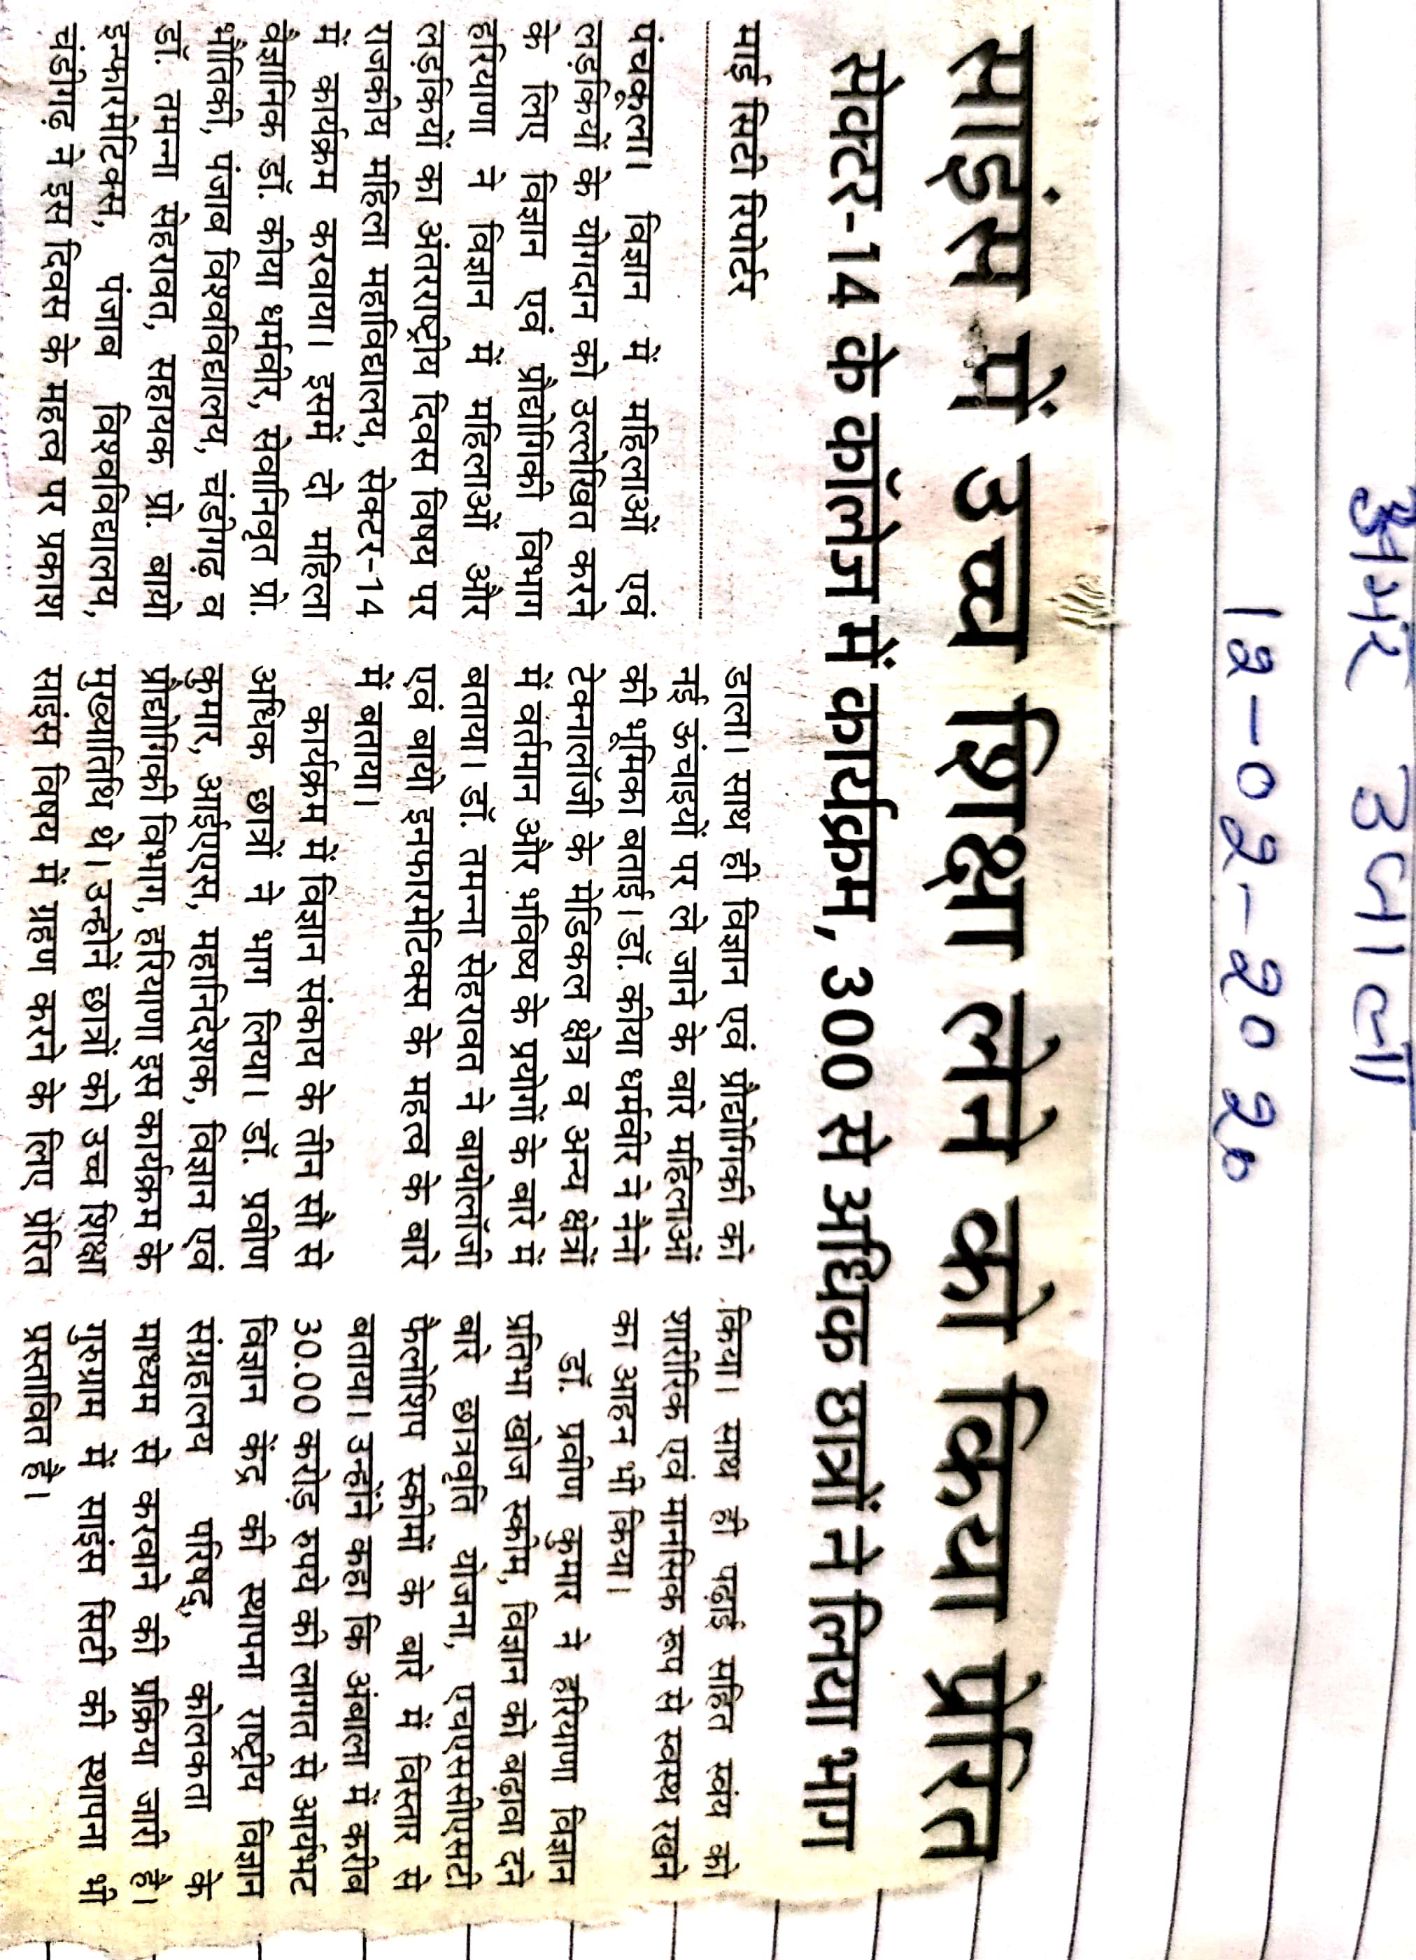 अमर उजाला
12-02-2020
साइंस में उच्च शिक्षा लेने को किया प्रेरित
सेक्टर-14 के कॉलेज में कार्यक्रम, 300 से अधिक छात्रों ने लिया भाग
माई सिटी रिपोर्टर
पंचकूला। विज्ञान में महिलाओं एवं
लड़कियों के योगदान को उल्लेखित करने
के लिए विज्ञान एवं प्रौद्योगिकी विभाग
हरियाणा ने विज्ञान में महिलाओं और
लड़कियों का अंतरराष्ट्रीय दिवस विषय पर
राजकीय महिला महाविद्यालय, सेक्टर-14
में कार्यक्रम करवाया। इसमें दो महिला
वैज्ञानिक डॉ. कीया धर्मवीर, सेवानिवृत प्रो.
भौतिकी, पंजाब विश्वविद्यालय, चंडीगढ़ व
डॉ. तमन्ना सेहरावत, सहायक प्रो. बायो
इन्फारमेटिक्स, पंजाब विश्वविद्यालय,
चंडीगढ़ ने इस दिवस के महत्व पर प्रकाश
डाला। साथ ही विज्ञान एवं प्रौद्योगिकी को
नई ऊंचाइयों पर ले जाने के बारे महिलाओं
की भूमिका बताई। डॉ. कीया धर्मवीर ने नैनो
टेक्नालॉजी के मेडिकल क्षेत्र व अन्य क्षेत्रों
में वर्तमान और भविष्य के प्रयोगों के बारे में
बताया। डॉ. तमन्ना सेहरावत ने बायोलॉजी
एवं बायो इनफारमेटिक्स के महत्व के बारे
में बताया।
कार्यक्रम में विज्ञान संकाय के तीन सौ से
अधिक छात्रों ने भाग लिया। डॉ. प्रवीण
कुमार, आईएएस, महानिदेशक, विज्ञान एवं
प्रौद्योगिकी विभाग, हरियाणा इस कार्यक्रम के
मुख्यातिथि थे। उन्होनें छात्रों को उच्च शिक्षा
साइंस विषय में ग्रहण करने के लिए प्रेरित
किया। साथ ही पढ़ाई सहित स्वंय को
शारीरिक एवं मानसिक रूप से स्वस्थ रखने
का आहन भी किया।
डॉ. प्रवीण कुमार ने हरियाणा विज्ञान
प्रतिभा खोज स्कीम, विज्ञान को बढ़ावा देने
बारे छात्रवृति योजना, एचएससीएसटी
फैलोशिप स्कीमों के बारे में विस्तार से
बताया। उन्होंने कहा कि अंबाला में करीब
30.00 करोड़ रुपये की लागत से आर्यभट
विज्ञान केंद्र की स्थापना राष्ट्रीय विज्ञान
संग्रहालय परिषद्, कोलकता के
माध्यम से करवाने की प्रक्रिया जारी है।
गुरुग्राम में साइंस सिटी की स्थापना भी
प्रस्तावित है।